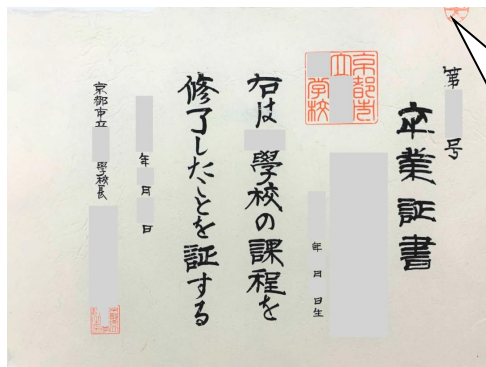 第 号
卒業証書
京都市
立
学校
年 月 日生
右は 學校の課程を
修了したことを証する
年 月 日
京都市立 學校長